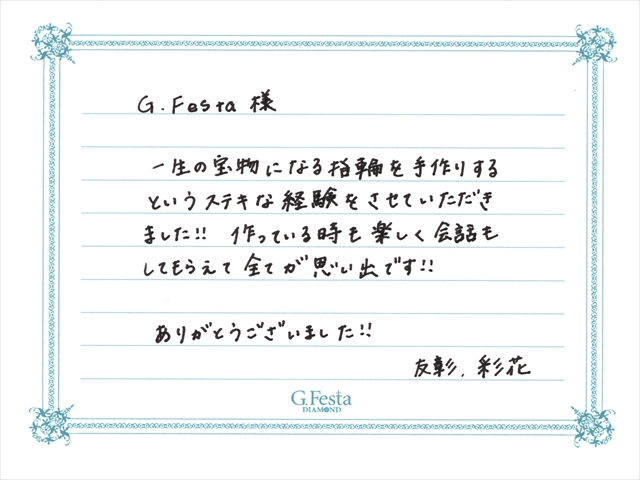 G.Festa 様
一生の宝物になる指輪を手作りする
というステキな経験をさせていただき
ました!! 作っている時も楽しく会話も
してもらえて全てが思い出です!!
ありがとうございました!!
友彰. 彩花
G.Festa
DIAMOND